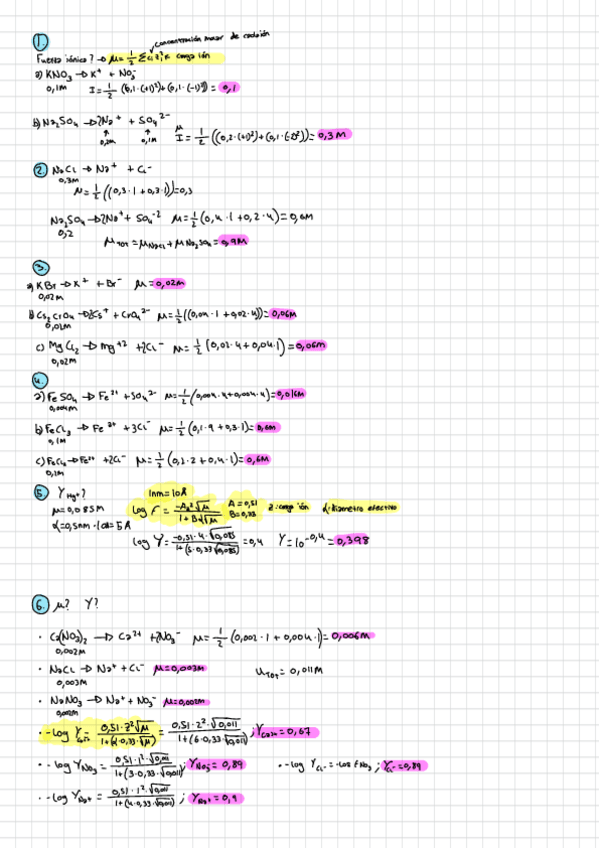 1.
Concentración molar de cada ión
Fuerza iónica? → μ = 1/2 Σ ci zi² carga ión
a) KNO3 → K+ + NO3-
0,1M I = 1/2 (0,1·(+1)²) + (0,1·(-1)²)) = 0,1
b) Na2SO4 → 2Na+ + SO4 2-
0,2M 0,1M μ I = 1/2 ((0,2·(+1)²) + (0,1·(-2)²)) = 0,3M
2. NaCl → Na+ + Cl-
0,3M
μ = 1/2 ((0,3·1 + 0,3·1)) = 0,3
Na2SO4 → 2Na+ + SO4-2 μ = 1/2 (0,4·1 + 0,2·4) = 0,6M
0,2
μTOT = μNaCl + μNa2SO4 = 0,9M
3.
a) KBr → K+ + Br- μ = 0,02M
0,02M
b) Cs2CrO4 → 2Cs+ + CrO4 2- μ = 1/2 ((0,04·1 + 0,02·4)) = 0,06M
0,02M
c) MgCl2 → Mg+2 + 2Cl- μ = 1/2 (0,02·4 + 0,04·1) = 0,06M
0,02M
4.
a) FeSO4 → Fe2+ + SO4 2- μ = 1/2 (0,004·4 + 0,004·4) = 0,016M
0,004M
b) FeCl3 → Fe3+ + 3Cl- μ = 1/2 (0,1·9 + 0,3·1) = 0,6M
0,1M
c) FeCl2 → Fe2+ + 2Cl- μ = 1/2 (0,2·2 + 0,4·1) = 0,6M
0,1M
5. γHg2+? 1nm = 10Å
μ = 0,085M log γ = -Az²√μ / 1 + Bα√μ A = 0,51 B = 0,33 z: carga ión α: diámetro efectivo
α = 0,5nm·10Å = 5Å
log γ = -0,51·4·√0,085 / 1 + (5·0,33·√0,085) = 0,4 γ = 10^-0,4 = 0,398
6. μ? γ?
· Ca(NO3)2 → Ca2+ + 2NO3- μ = 1/2 (0,002·1 + 0,004·1) = 0,006M
0,002M
· NaCl → Na+ + Cl- μ = 0,003M μTOT = 0,011M
0,003M
· NaNO3 → Na+ + NO3- μ = 0,002M
0,002M
· -log γCa2+ = 0,51·z²√μ / 1 + (α·0,33·√μ) = 0,51·2²·√0,011 / 1 + (6·0,33·√0,011) ; γCa2+ = 0,67
· -log γNO3 = 0,51·1²·√0,011 / 1 + (3·0,33·√0,011) ; γNO3- = 0,89 · -log γCl- = -log γNO3 ; γCl- = 0,89
· -log γNa+ = 0,51·1²·√0,011 / 1 + (4·0,33·√0,011) ; γNa+ = 0,9